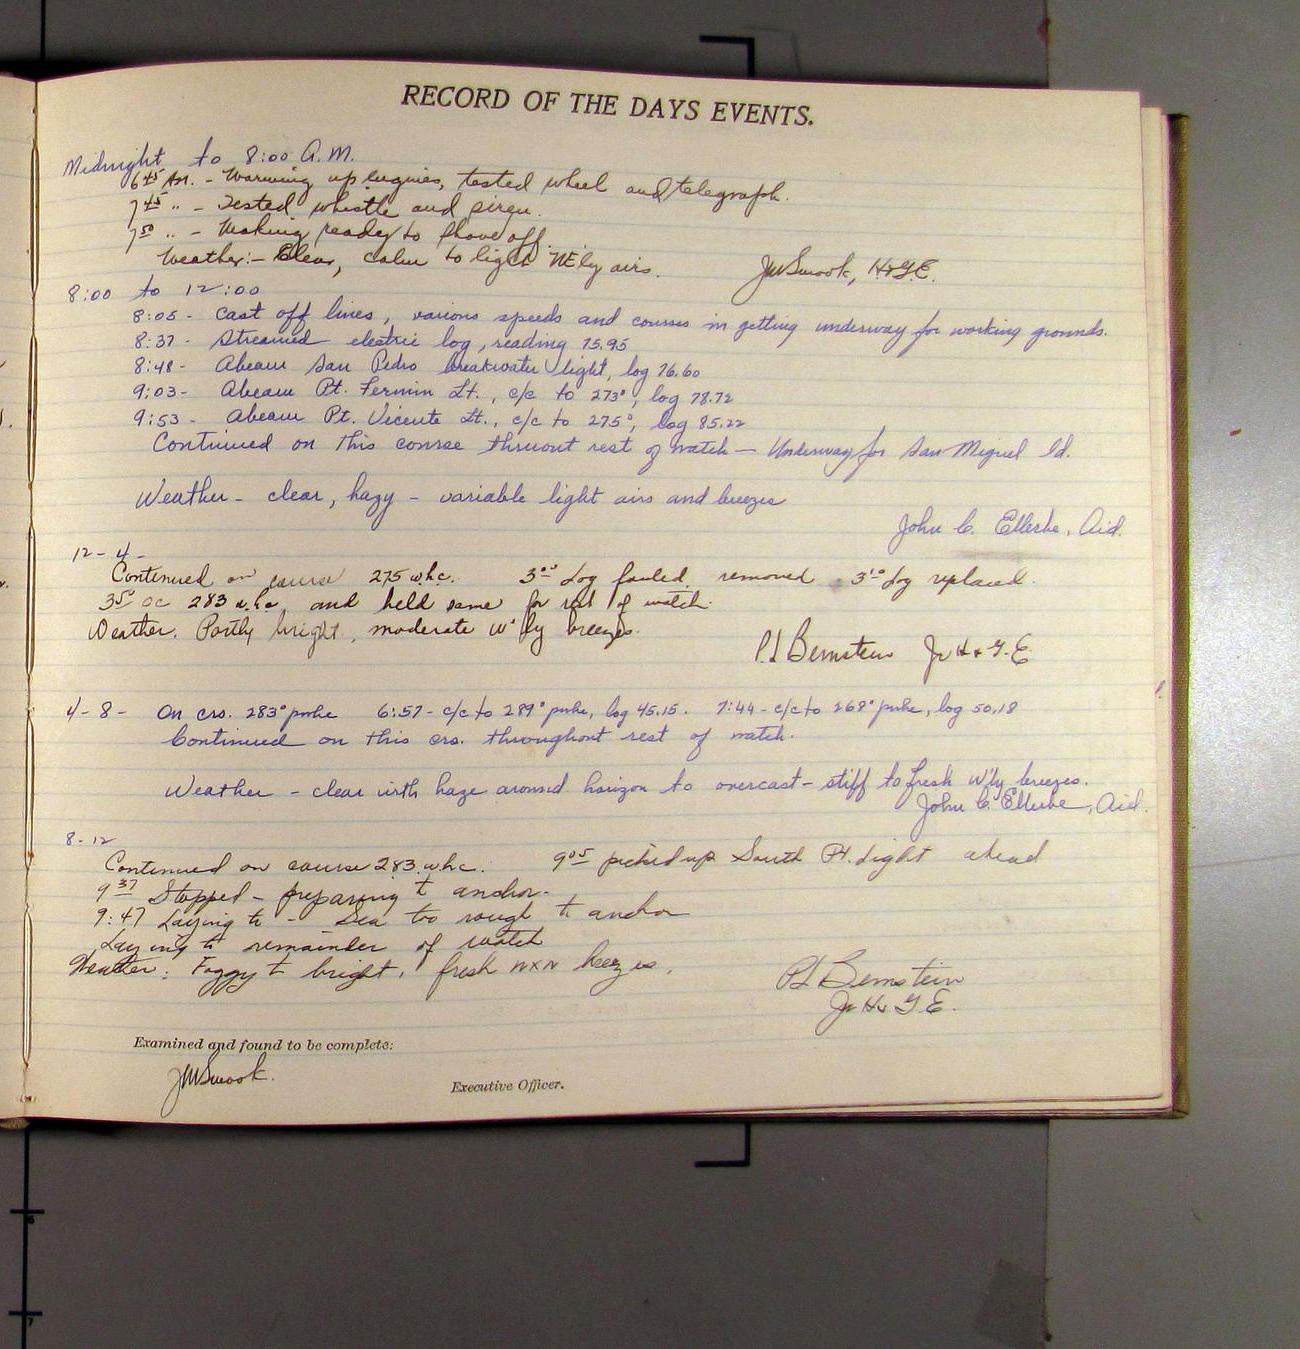 RECORD OF THE DAYS EVENTS.
Midnight to 8:00 A.M.
6 45 AM. - Warming up engines, tested wheel and telegraph.
7 45 " - Tested whistle and siren.
7 50 " - Making ready to shove off.
Weather:- Clear, calm to light NE'ly airs. JMSmook, H&GE.
8:00 to 12:00
8:05 - Cast off lines, various speeds and courses in getting underway for working grounds.
8:37 - Streamed electric log, reading 75.95
8:48 - Abeam San Pedro breakwater light, log 76.60
9:03 - Abeam Pt. Fermin Lt., c/c to 273°, log 78.72
9:53 - Abeam Pt. Vicente Lt., c/c to 275°, log 85.22
Continued on this course thruout rest of watch — Underway for San Miguel Id.
Weather - clear, hazy - variable light airs and breezes
John C. Ellerbe, Aid.
12 - 4 -
Continued on course 275 whc. 3 Log fouled, removed 3 10 Log replaced.
283 whc, and held same for rest of watch.
Weather. Partly bright, moderate W'ly breezes.
P.L Bernstein Jr H & G.E
4 - 8 - On crs. 283° 6:57 - c/c to 289° log 45.15. 7:44 - c/c to 268° log 50.18
Continued on this crs. throughout rest of watch.
Weather - clear with haze around horizon to overcast - stiff to fresh W'ly breezes.
John C. Ellerbe, Aid.
8 - 12
Continued on course 283 whc. 9 05 picked up South Pt. Light ahead
9 37 Stopped - preparing to anchor.
9:47 Laying to - Sea too rough to anchor
Laying to remainder of watch
Weather: Foggy to bright, fresh NXN breezes.
PL Bernstein
Jr H & G E.
Examined and found to be complete:
JMSmook.
Executive Officer.